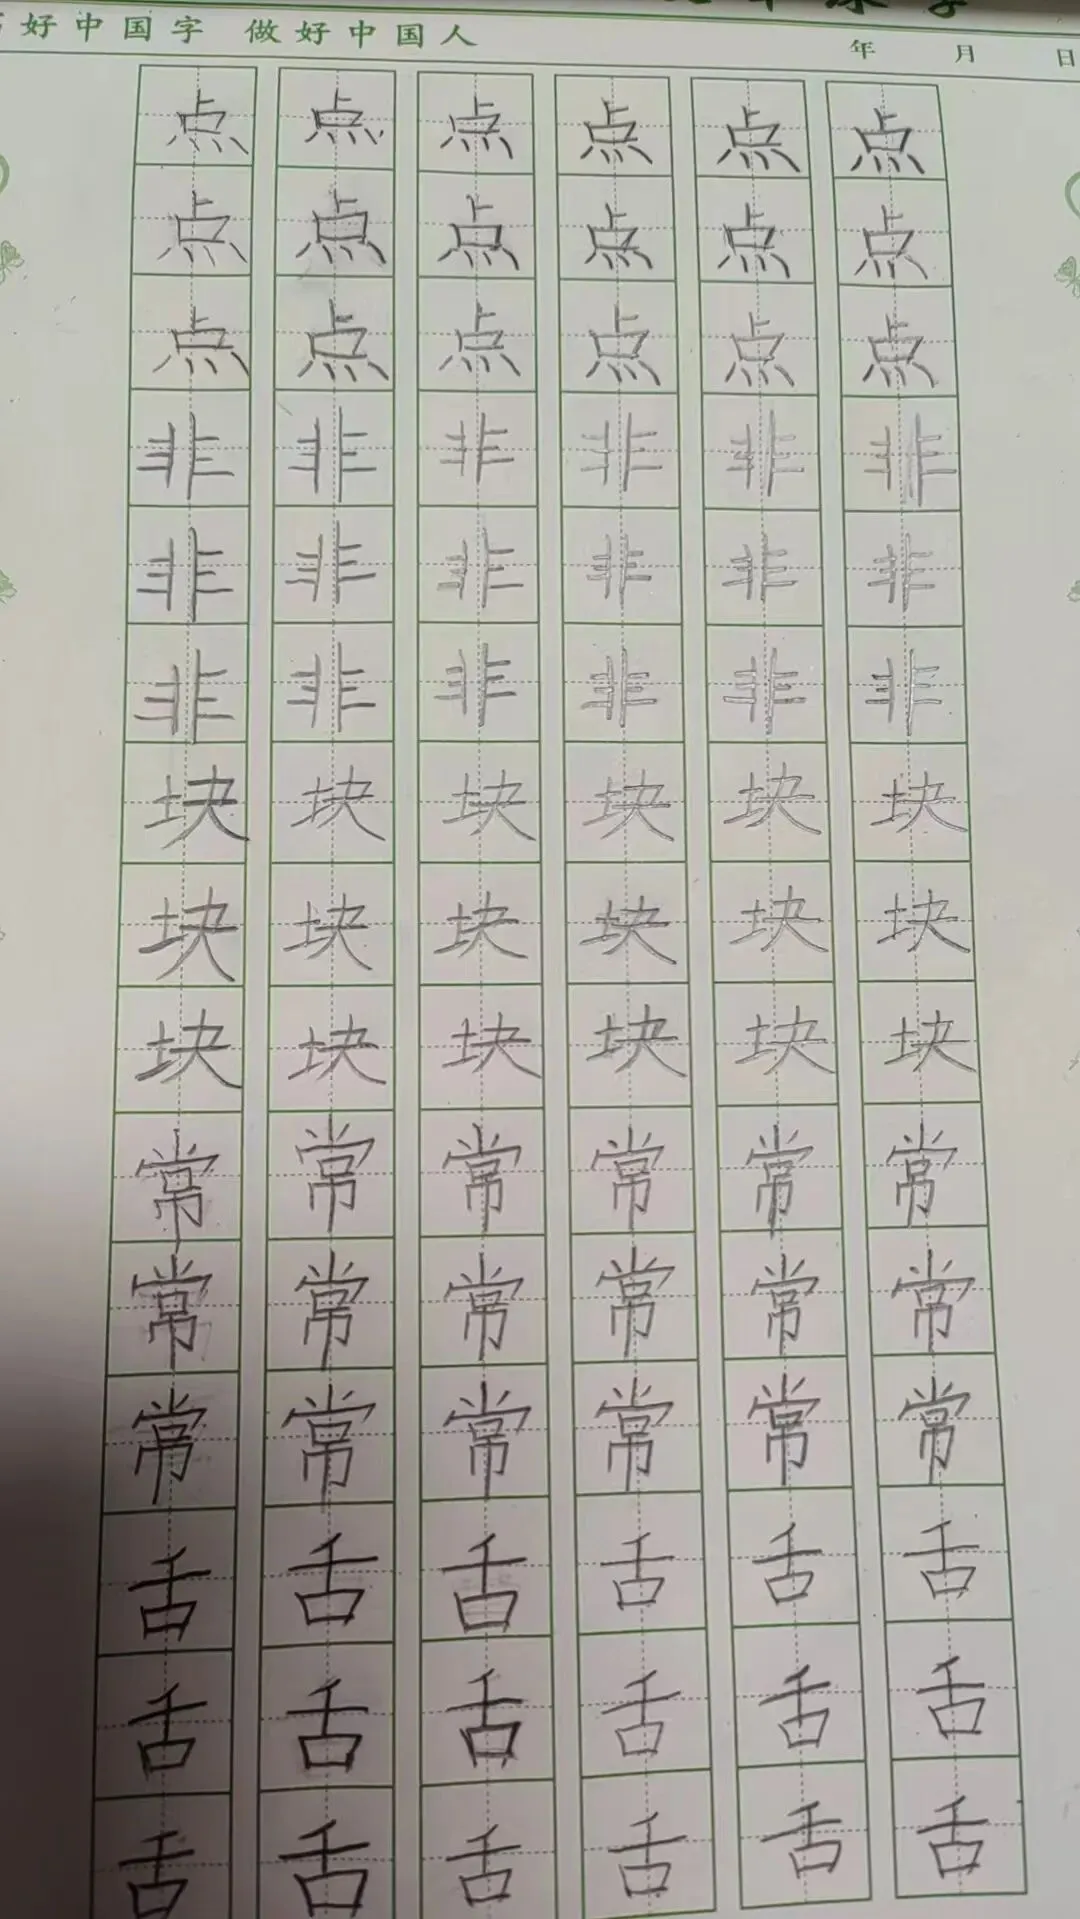 好中国字 做好中国人
年 月 日
点 点 点 点 点 点
点 点 点 点 点 点
点 点 点 点 点 点
非 非 非 非 非 非
非 非 非 非 非 非
非 非 非 非 非 非
块 块 块 块 块 块
块 块 块 块 块 块
块 块 块 块 块 块
常 常 常 常 常 常
常 常 常 常 常 常
常 常 常 常 常 常
舌 舌 舌 舌 舌 舌
舌 舌 舌 舌 舌 舌
舌 舌 舌 舌 舌 舌